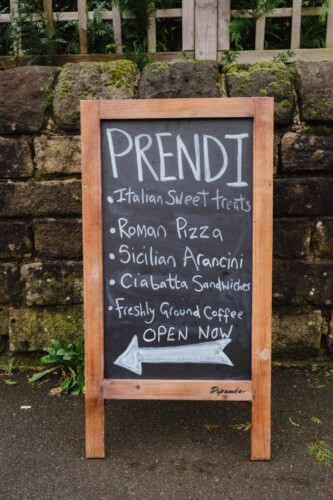 PRENDI
• Italian Sweet treats
• Roman Pizza
• Sicilian Arancini
• Ciabatta Sandwiches
• Freshly Ground Coffee
OPEN NOW